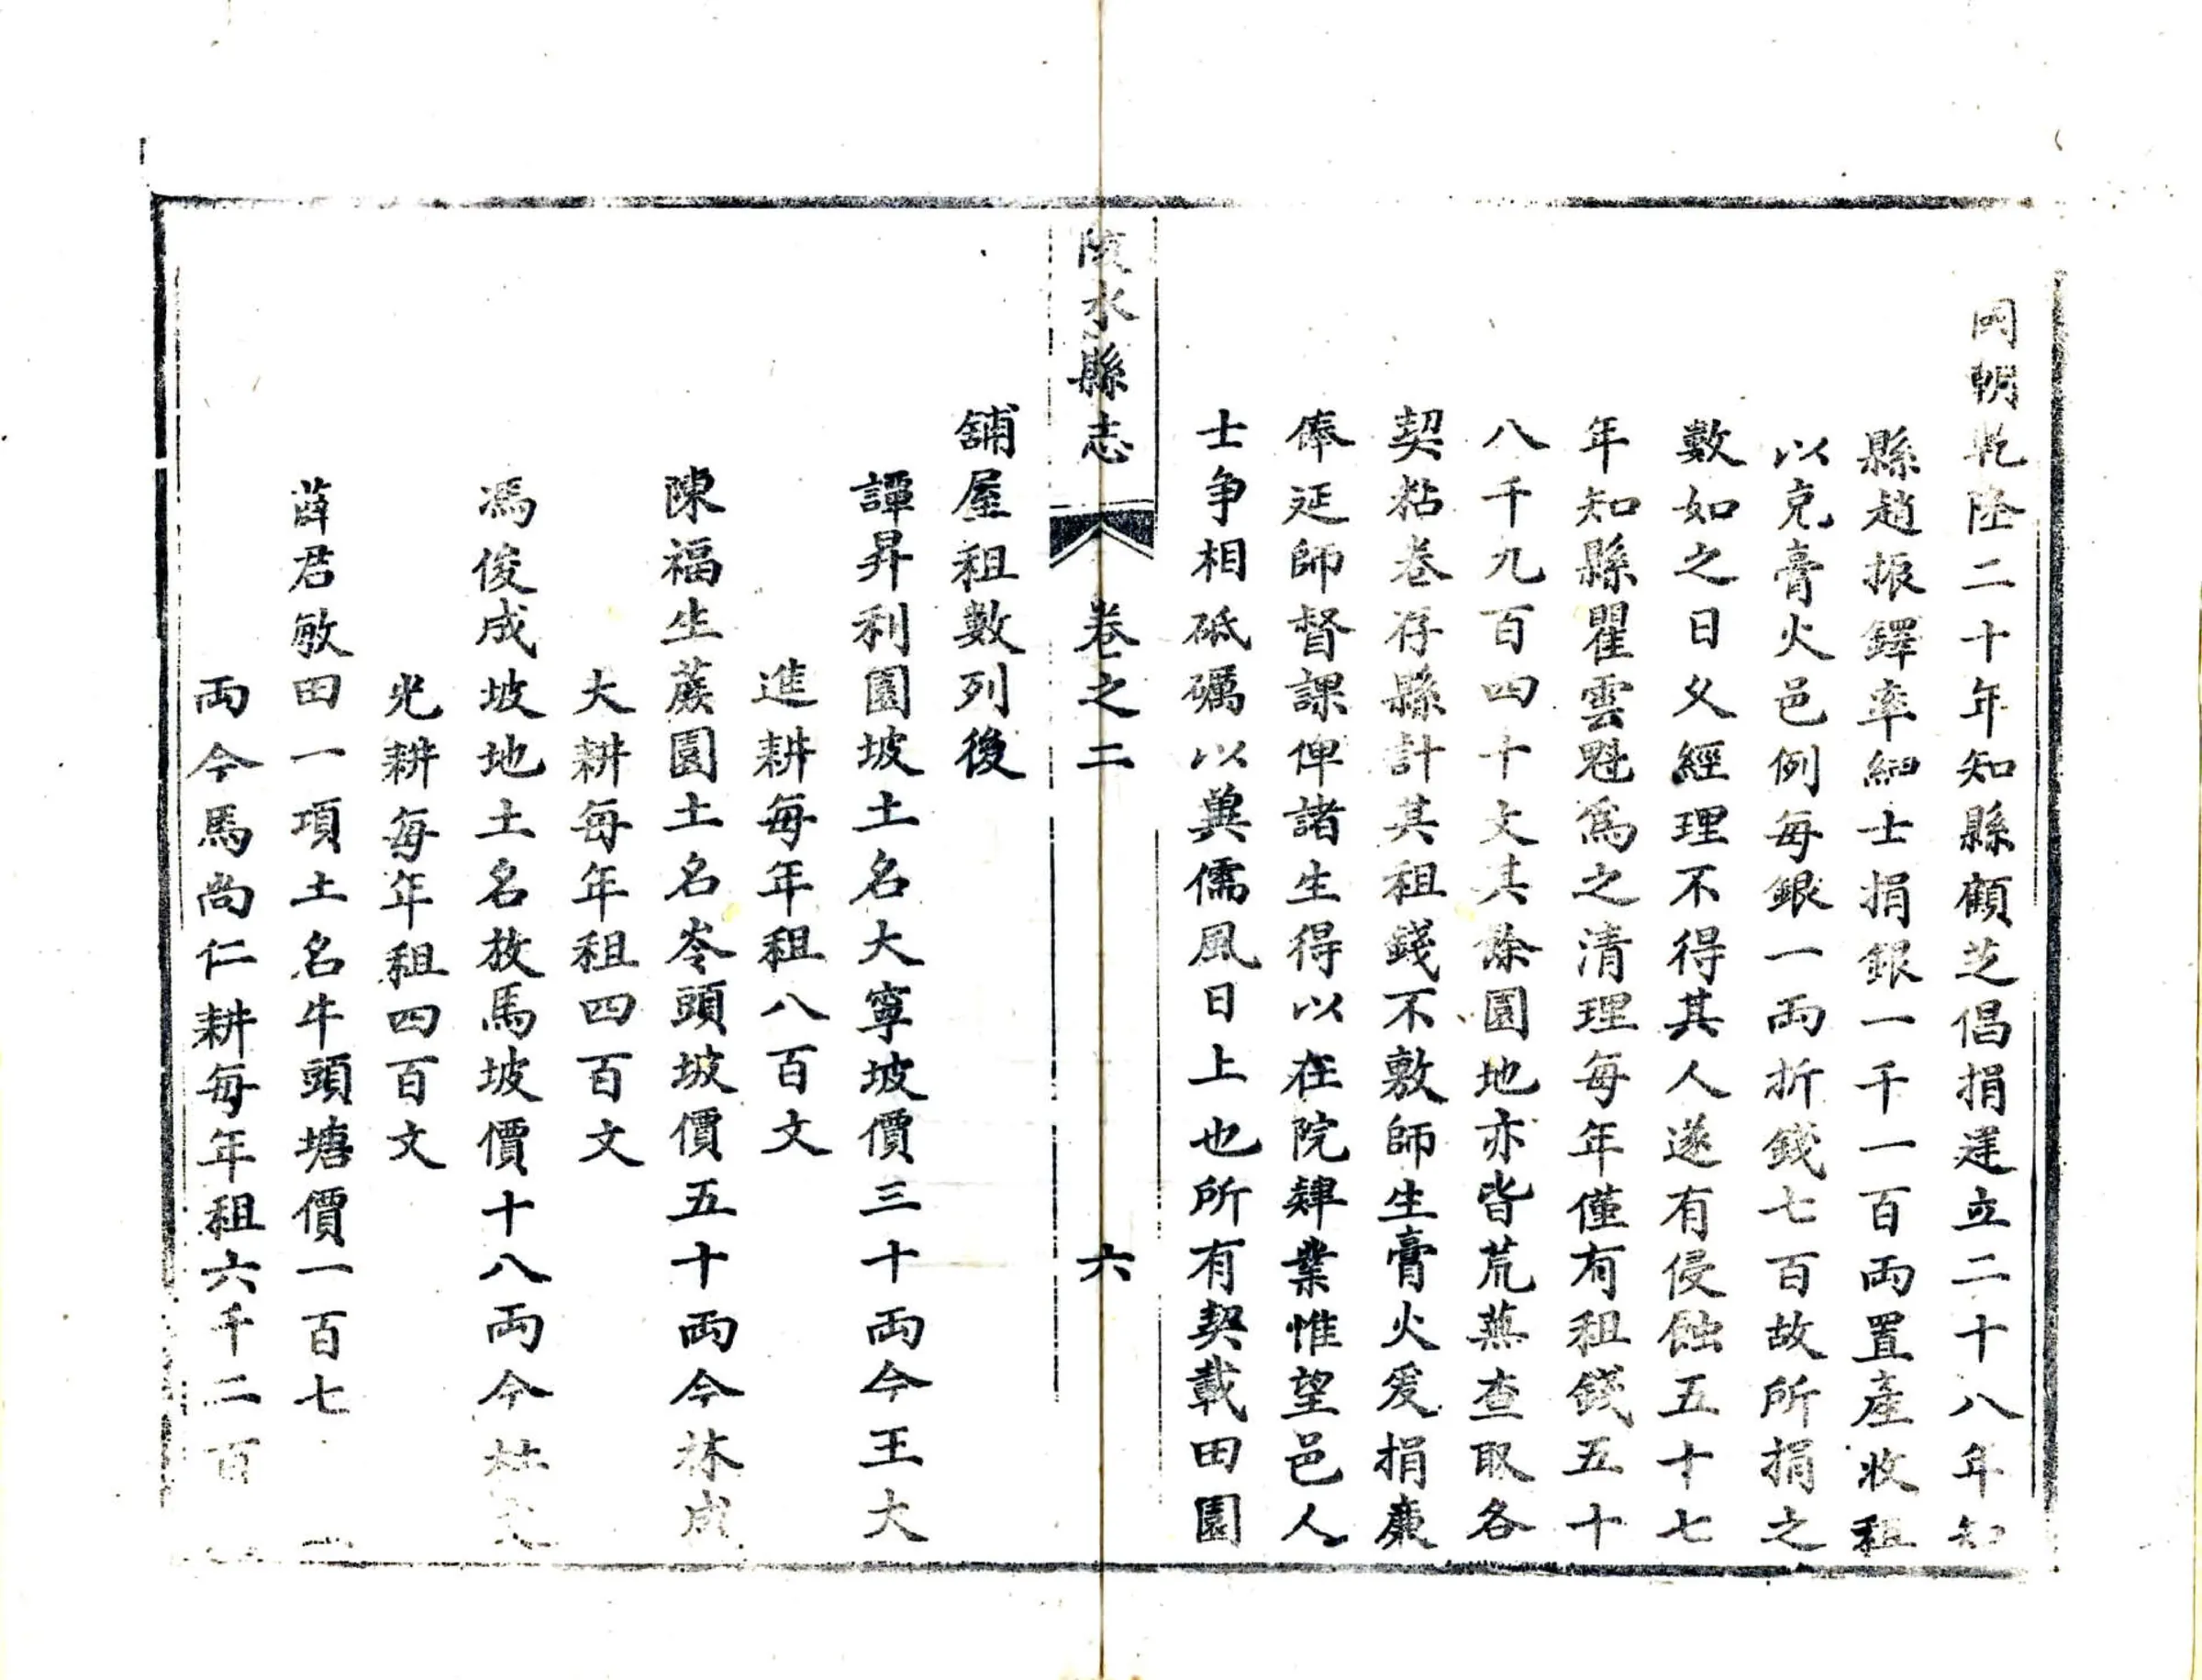 國朝乾隆二十年知縣顧芝倡捐建立二十八年知
縣趙振鐸率紳士捐銀一千一百両置產收租
以充膏火邑例每銀一両折錢七百故所捐之
數如之日久經理不得其人遂有侵蝕五十七
年知縣瞿雲魁為之清理每年僅有租錢五十
八千九百四十文其餘園地亦皆荒蕪查取各
契粘卷存縣計其租錢不敷師生膏火爰捐廉
俸延師督課俾諸生得以在院肄業惟望邑人
士争相砥礪以興儒風日上也所有契載田園
陵水縣志 卷之二 六
舖屋租數列後
譚昇利園坡土名大寧坡價三十両今王大
進耕每年租八百文
陳福生蔗園土名岺頭坡價五十両今林成
大耕每年租四百文
馮俊成坡地土名放馬坡價十八両今林文
光耕每年租四百文
薛君敏田一項土名牛頭塘價一百七
両今馬尚仁耕每年租六千二百